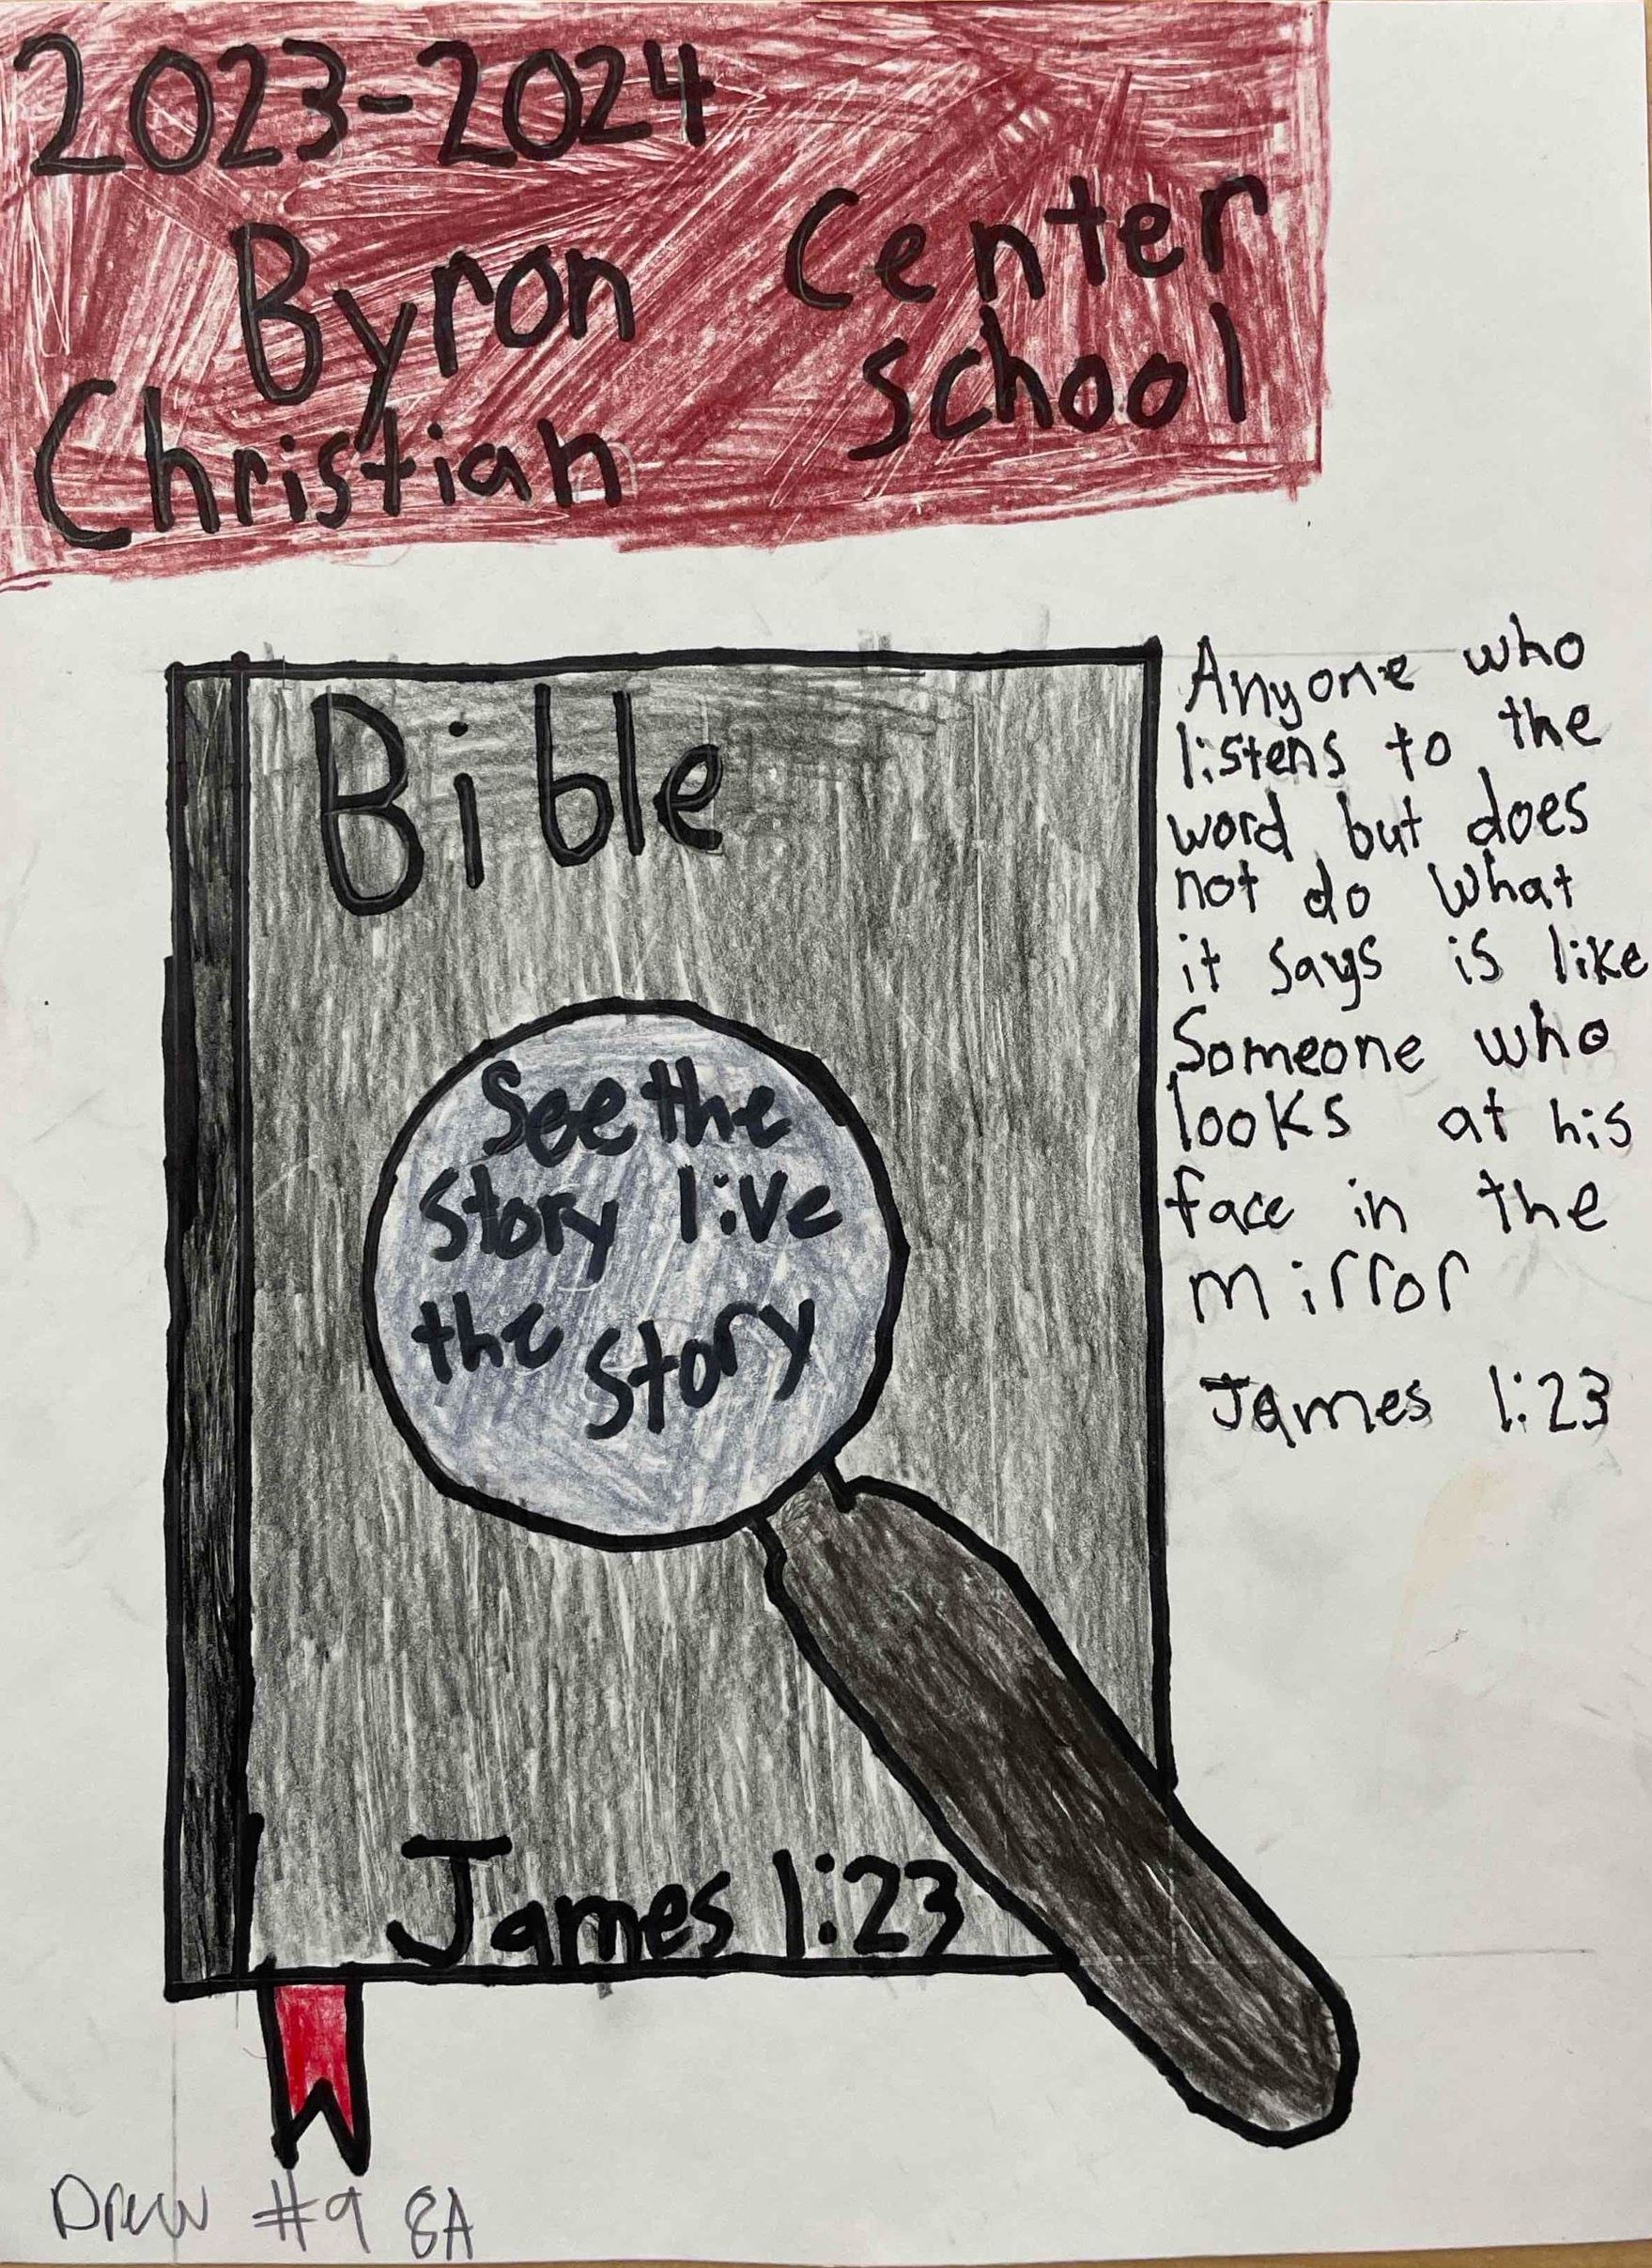 2023-2024
Byron Center
Christian School
Bible
See the
story live
the story
James 1:23
Anyone who
listens to the
word but does
not do what
it says is like
Someone who
looks at his
face in the
mirror
James 1:23
Drew #9 8A